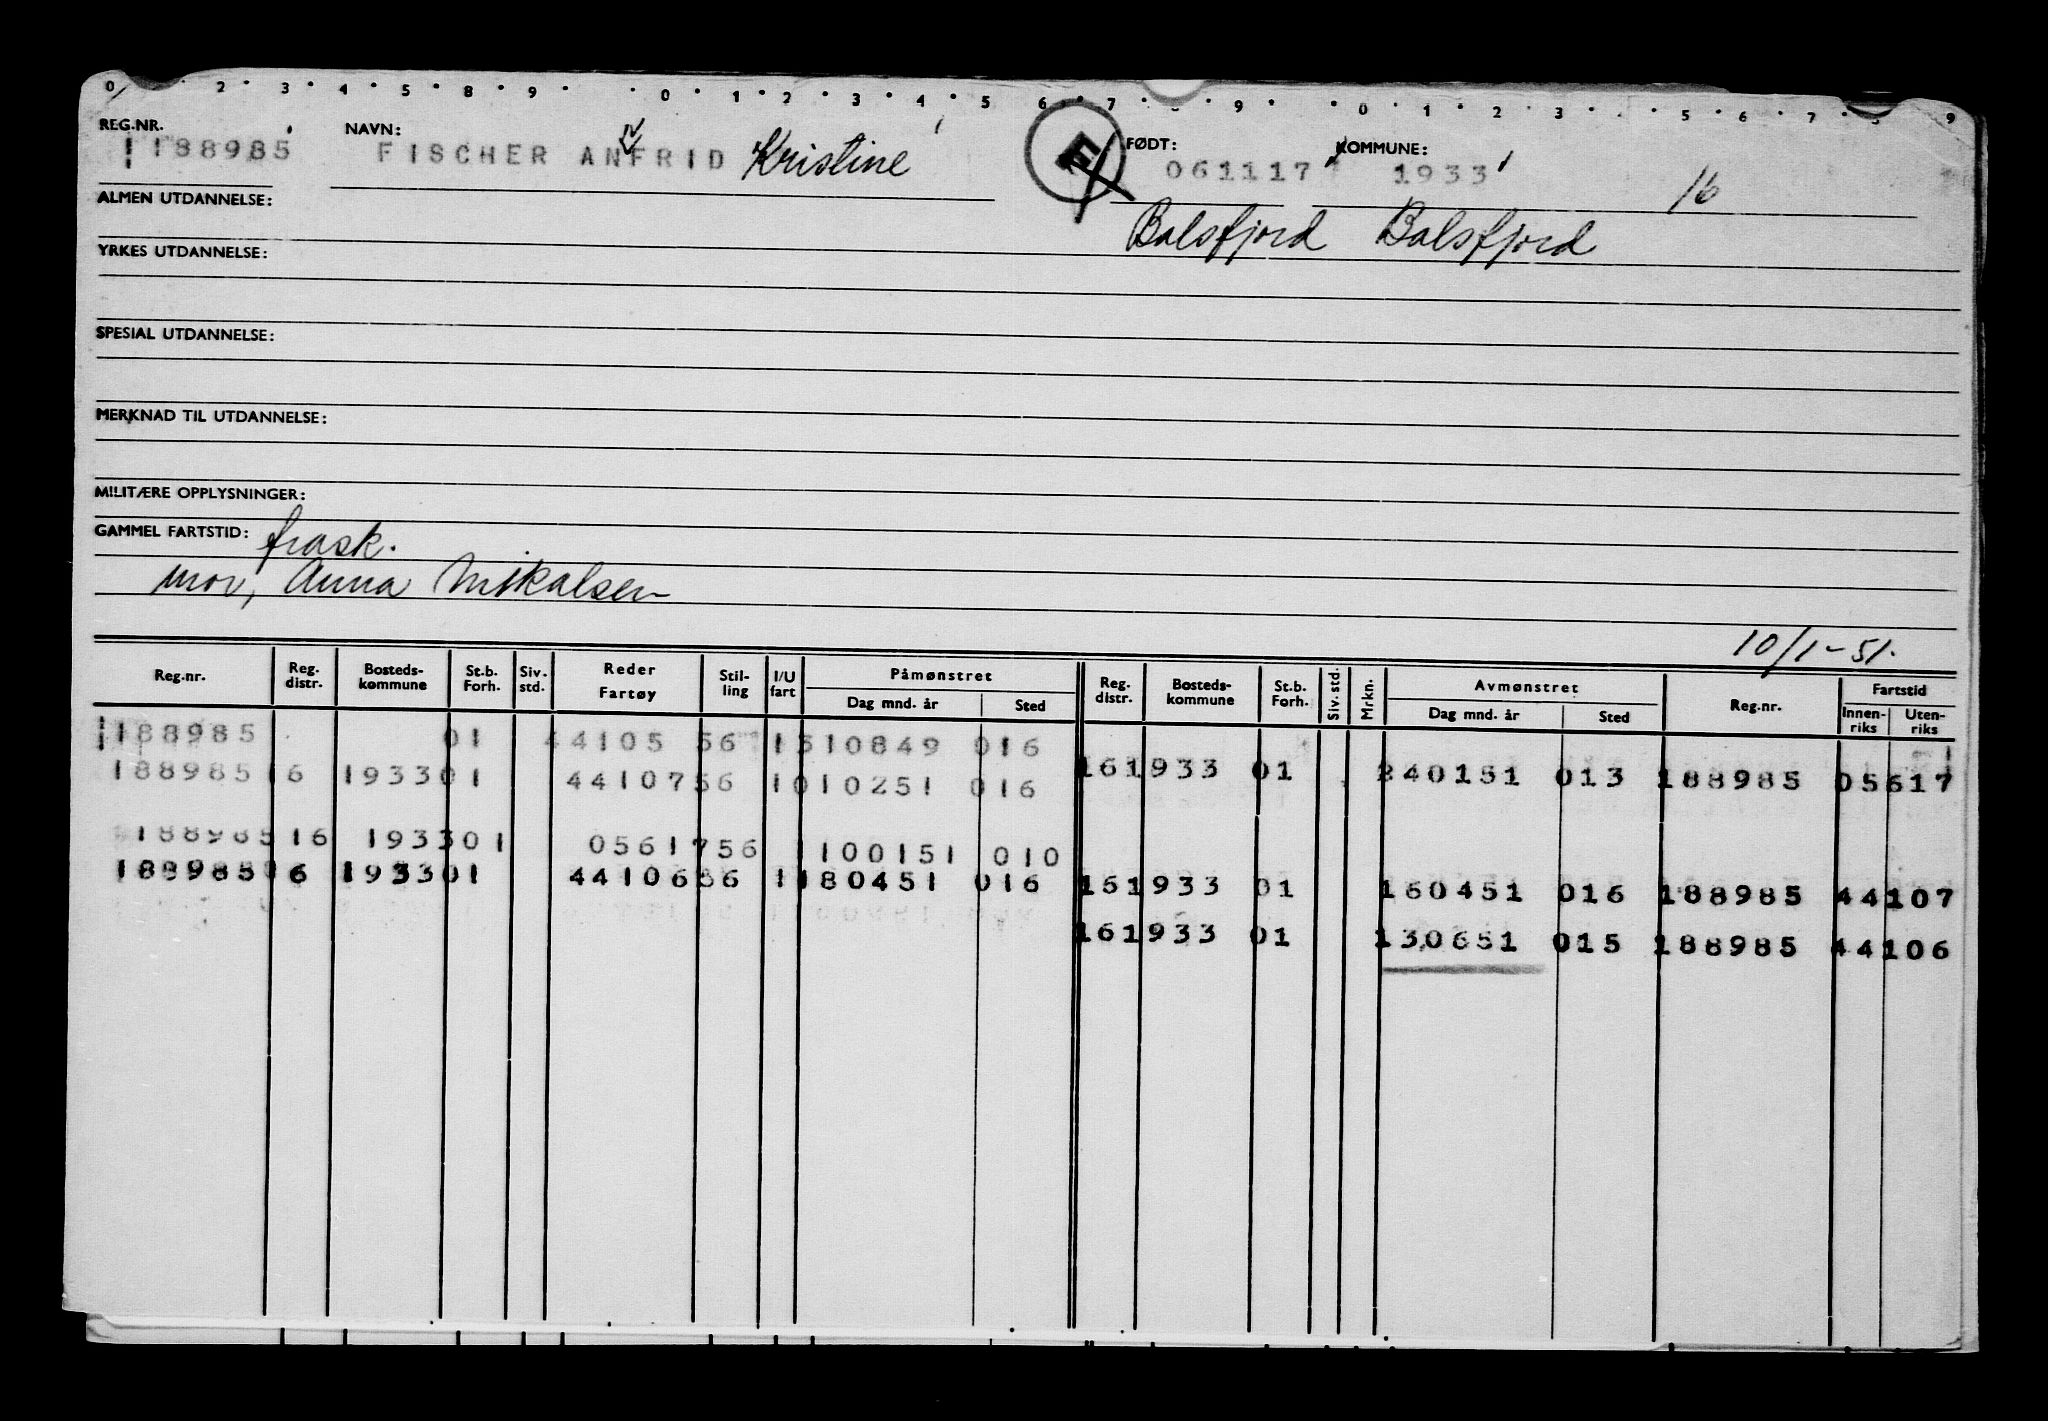 0 2 3 4 5 8 9 0 1 2 3 4 5 6 7 9 0 1 2 3 5 6 7 8 9
REG.NR. NAVN: FØDT: KOMMUNE:
188985 FISCHER ANFRID Kristine E 061117 1933 16
ALMEN UTDANNELSE: Balsfjord Balsfjord
YRKES UTDANNELSE:
SPESIAL UTDANNELSE:
MERKNAD TIL UTDANNELSE:
MILITÆRE OPPLYSNINGER:
GAMMEL FARTSTID: frask.
mor, Anna Mikalsen
10/1-51.
Reg.nr. Reg. distr. Bosteds-kommune St.b. Forh. Siv. std. Reder Fartøy Stil-ling I/U fart Påmønstret Dag mnd. år Sted Reg. distr. Bosteds-kommune St.b. Forh. Siv. std. Mrkn. Avmønstret Dag mnd. år Sted Reg.nr. Fartstid Innen-riks Uten-riks
188985 01 44105 56 1 310849 016
188985 16 1933 01 44107 56 1 010251 016 16 1933 01 240151 013 188985 05617
188985 16 1933 01 05617 56 1 100151 010
188985 16 1933 01 44106 56 1 180451 016 16 1933 01 160451 016 188985 44107
16 1933 01 130651 015 188985 44106